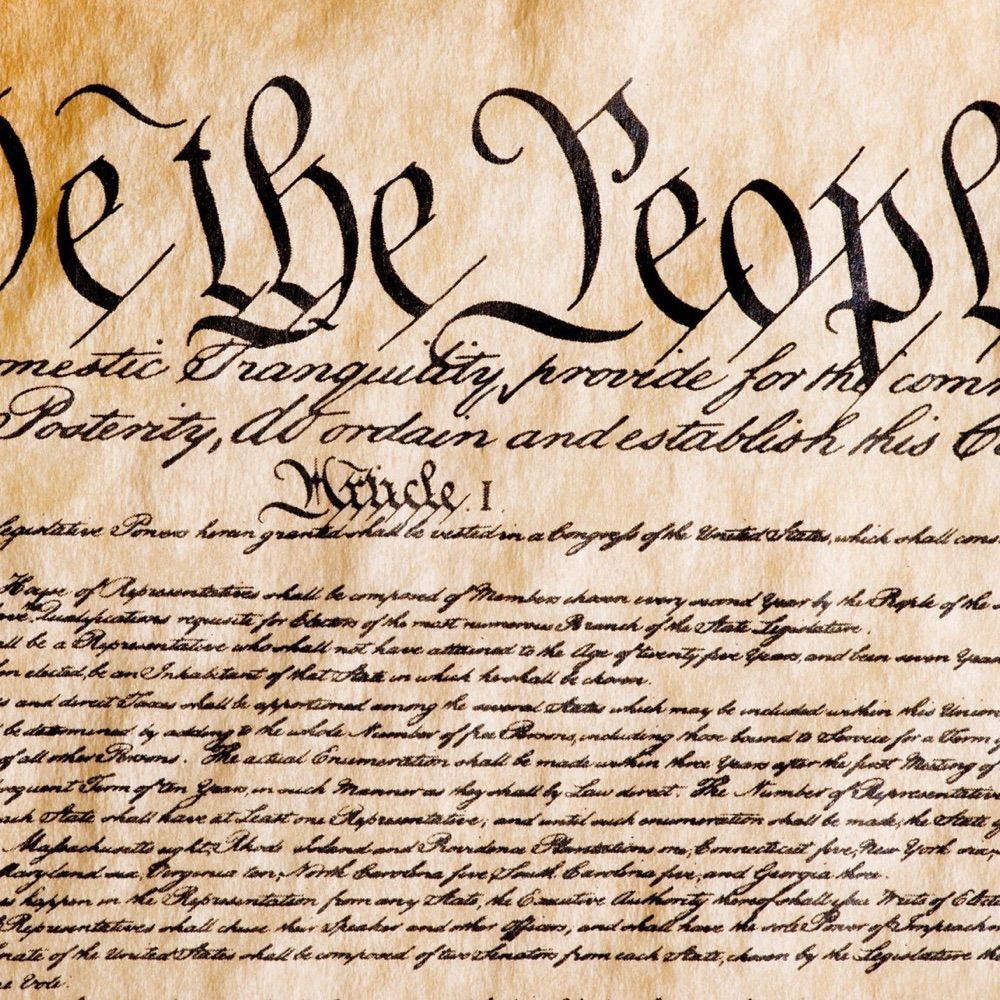 We the People
omestic Tranquility, provide for the com
Posterity, do ordain and establish this Co
Article. I.
legislative Powers herein granted shall be vested in a Congress of the United States, which shall cons
House of Representatives shall be composed of Members chosen every second Year by the People of the s
have the Qualifications requisite for Electors of the most numerous Branch of the State Legislature.
all be a Representative who shall not have attained to the Age of twenty five Years, and been seven Years
en elected, be an Inhabitant of that State in which he shall be chosen.
s and direct Taxes shall be apportioned among the several States which may be included within this Union
be determined by adding to the whole Number of free Persons, including those bound to Service for a Term of
of all other Persons. The actual Enumeration shall be made within three Years after the first Meeting of
sequent Term of ten Years, in such Manner as they shall by Law direct. The Number of Representatives
ach State shall have at Least one Representative; and until such enumeration shall be made, the State of
Massachusetts eight, Rhode Island and Providence Plantations one, Connecticut five, New York six,
Maryland six, Virginia ten, North Carolina five, South Carolina five, and Georgia three.
es happen in the Representation from any State, the Executive Authority thereof shall issue Writs of Elect
Representatives shall chuse their Speaker and other Officers; and shall have the sole Power of Impeachm
nate of the United States shall be composed of two Senators from each State, chosen by the Legislature the
e Vote.